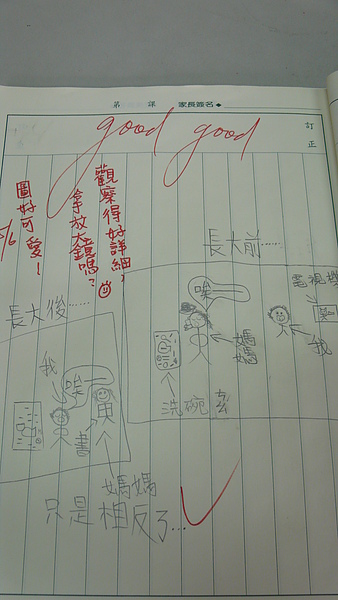 第 課 家長簽名◆
訂正
good good
觀察得好詳細，
拿放大鏡嗎？
圖好可愛！
5/6
長大前……
電視機
我
唉
媽媽
洗碗
長大後……
我
唉
書
媽媽
只是相反了…